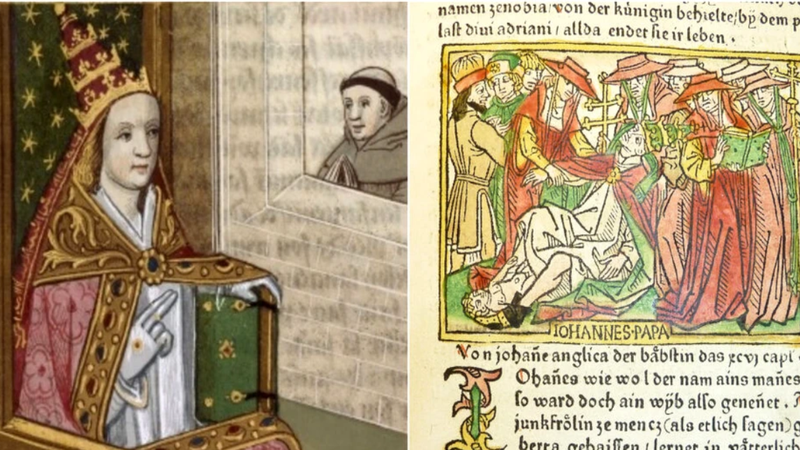 namen zenobia/von der künigin behielte/bÿ dem p
last diui adriani / allda endet sie ir leben .
IOHANNES·PAPA
Von johañe anglica der båbstin das xcvj capi
Ohañes wie wol der nam ains mañes
so ward doch ain wÿb also geneñet.
junkfrölin ze mencz(als etlich sagen)g
berta gehaissen/lernet in våtterlich